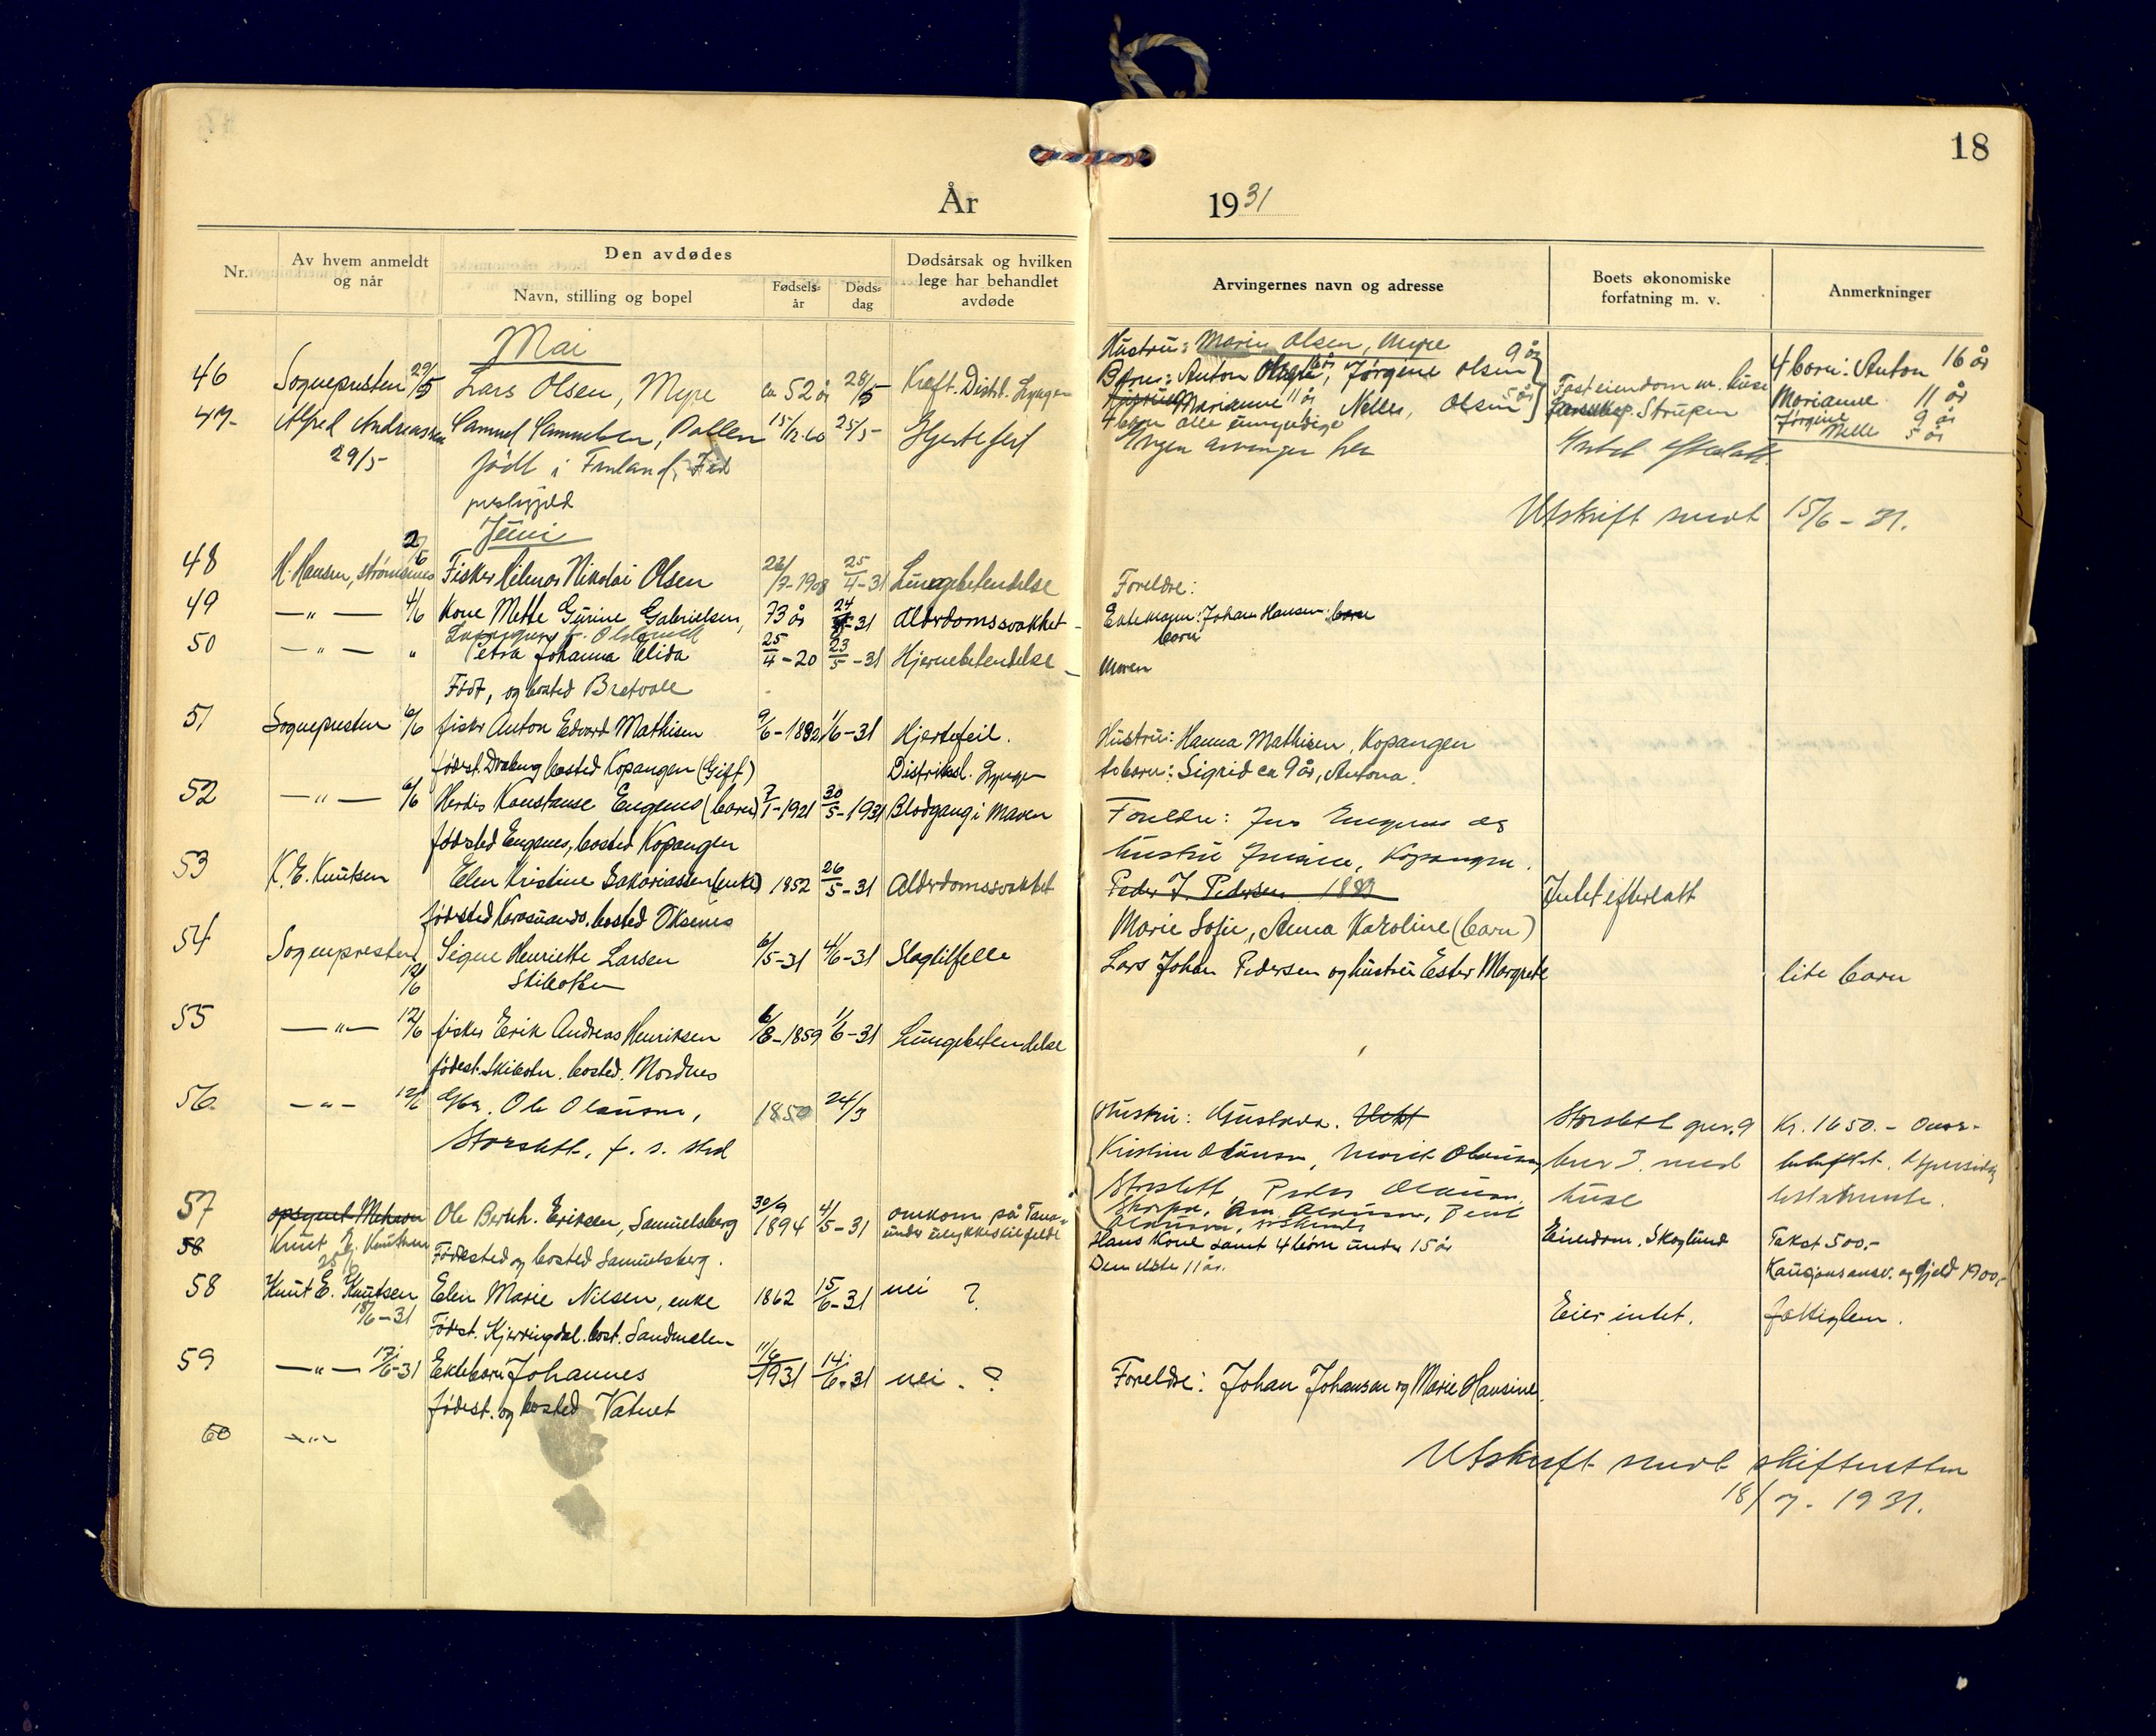 18
År 1931
Nr.
Av hvem anmeldt og når
Den avdødes
Navn, stilling og bopel
Fødselsår
Dødsdag
Dødsårsak og hvilken lege har behandlet avdøde
Arvingernes navn og adresse
Boets økonomiske forfatning m. v.
Anmerkninger
Mai
46 Sognepresten 29/5 Lars Olsen, Myre ca 52 år 28/5 Kreft. Distl. Lyngen
Hustru: Marin Olsen, Myre
Børn: Anton 16 år, Jørgine Olsen 9 år
Marianne 11 år Nelles, Olsen 5 år
4 børn alle umyndige
Fast eiendom m. huse
Strupen
4 børn: Anton 16 år
Marianne 11 år
Jørgine 9 år
Nelle 5 år
47 Alfred Andreassen 29/5 Samuel Samuelsen, Pollen 15/12-60 25/5 Hjertefeil
født i Finland,
prestegjeld
Ingen arvinger her
Intet efterlatt.
Utskrift sendt 15/6-31.
Juni
48 H. Hansen, Strømsnes 2/6 Fisker Hilmar Nikolai Olsen 26/7-1908 25/4-31 Lungebetendelse
Foreldre:
49 —"— 4/6 Kone Mette Gurine Gabrielsen, 73 år 24/ -31 Alderdomssvakket
Ektemann: Johan Hansen. barn
barn
50 —"— " Petra Johanna Elida 25/4-20 23/5-31 Hjernebetendelse
Født, og bosted Bretvoll
Moren
51 Sognepresten 6/6 fisker Anton Edvard Mathisen 9/6-1892 1/6-31 Hjertefeil.
fødest. bosted Kopangen (Gift)
Distriktsl. Lyngen
Hustru: Hanna Mathisen, Kopangen
to barn: Sigrid ca 9 år, Antona.
52 —"— 6/6 Herdis Konstanse Engenes (barn) 7/1-1921 30/5-1931 Blodgang i maven
fødsted Engenes, bosted Kopangen
Foreldre: Jens Engenes og
hustru Kopangen.
53 K. E. Knutsen Elen Kristine Sakariassen (enke) 1852 26/5-31 Alderdomssvakket
fødested Karesuando. bosted Oksenes
Peder J. Pedersen 1883
Marie Sofie, Anna Karoline (barn)
Intet efterlatt
54 Sognepresten 12/6 Signe Henriette Larsen 6/5-31 4/6-31 Slagtilfelle
Skibotn
Lars Johan Pedersen og hustru Ester Margrete
lite barn
55 —"— 12/6 fisker Erik Andreas Henriksen 6/8-1859 1/6-31 Lungebetendelse
fødest. Skibotn. bosted. Nordnes
56. —"— 12/6 Gbr. Ole Olausen, 1850 24/3
Storslett, f. s. sted
Hustru: Gustava.
Kristine Olausen, Marit Olausen,
Storslett, Peder Olausen,
Storslett gnr. 9
bnr 3 med
huse
Kr. 1650.-
57 Knut E. Knutsen Ole Berteh. Eriksen, Samuelsberg 30/9 1894 4/5-31 omkom på Tana
under ulykkestilfelde
Fødested og bosted Samuelsberg.
Hans kone samt 4 børn under 15 år
Den eldste 11 år.
Eiendom. Skoglund
Takst 500,-
Kausjonsansv. og Gjeld 1900,-
58
58 Knut E. Knutsen 18/6-31 Elen Marie Nilsen, enke 1862 15/6-31 nei ?
Født. Kjerringdal. bost. Sandmelen
Eier intet.
fattiglem.
59 —"— 17/6-31 Ektebarn Johannes 11/6 1931 14/6-31 nei. ?
fødest. og bosted Vatnet
Foreldre: Johan Johansen og Marie Hansine.
60 —"—
Utskrift sendt skifteretten
18/7-1931.